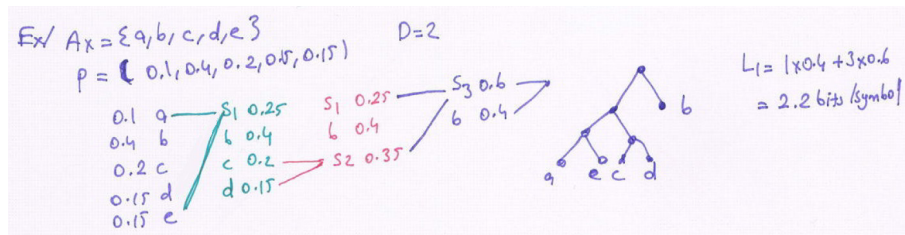 Ex/ Ax = {a, b, c, d, e} D=2
P = ( 0.1, 0.4, 0.2, 0.15, 0.15)
0.1 a
0.4 b
0.2 c
0.15 d
0.15 e
S1 0.25
b 0.4
c 0.2
d 0.15
S1 0.25
b 0.4
S2 0.35
S3 0.6
b 0.4
b
a e c d
L1 = 1x0.4 + 3x0.6
= 2.2 bits/symbol